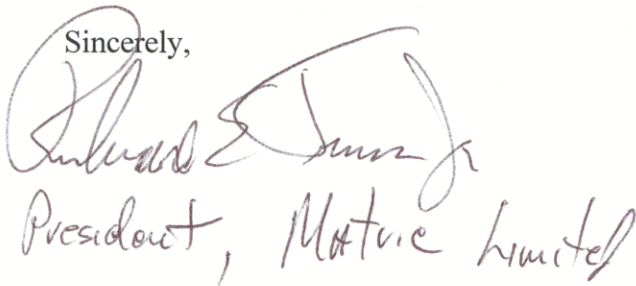 Sincerely,
Richard E Jr
President, Matric Limited